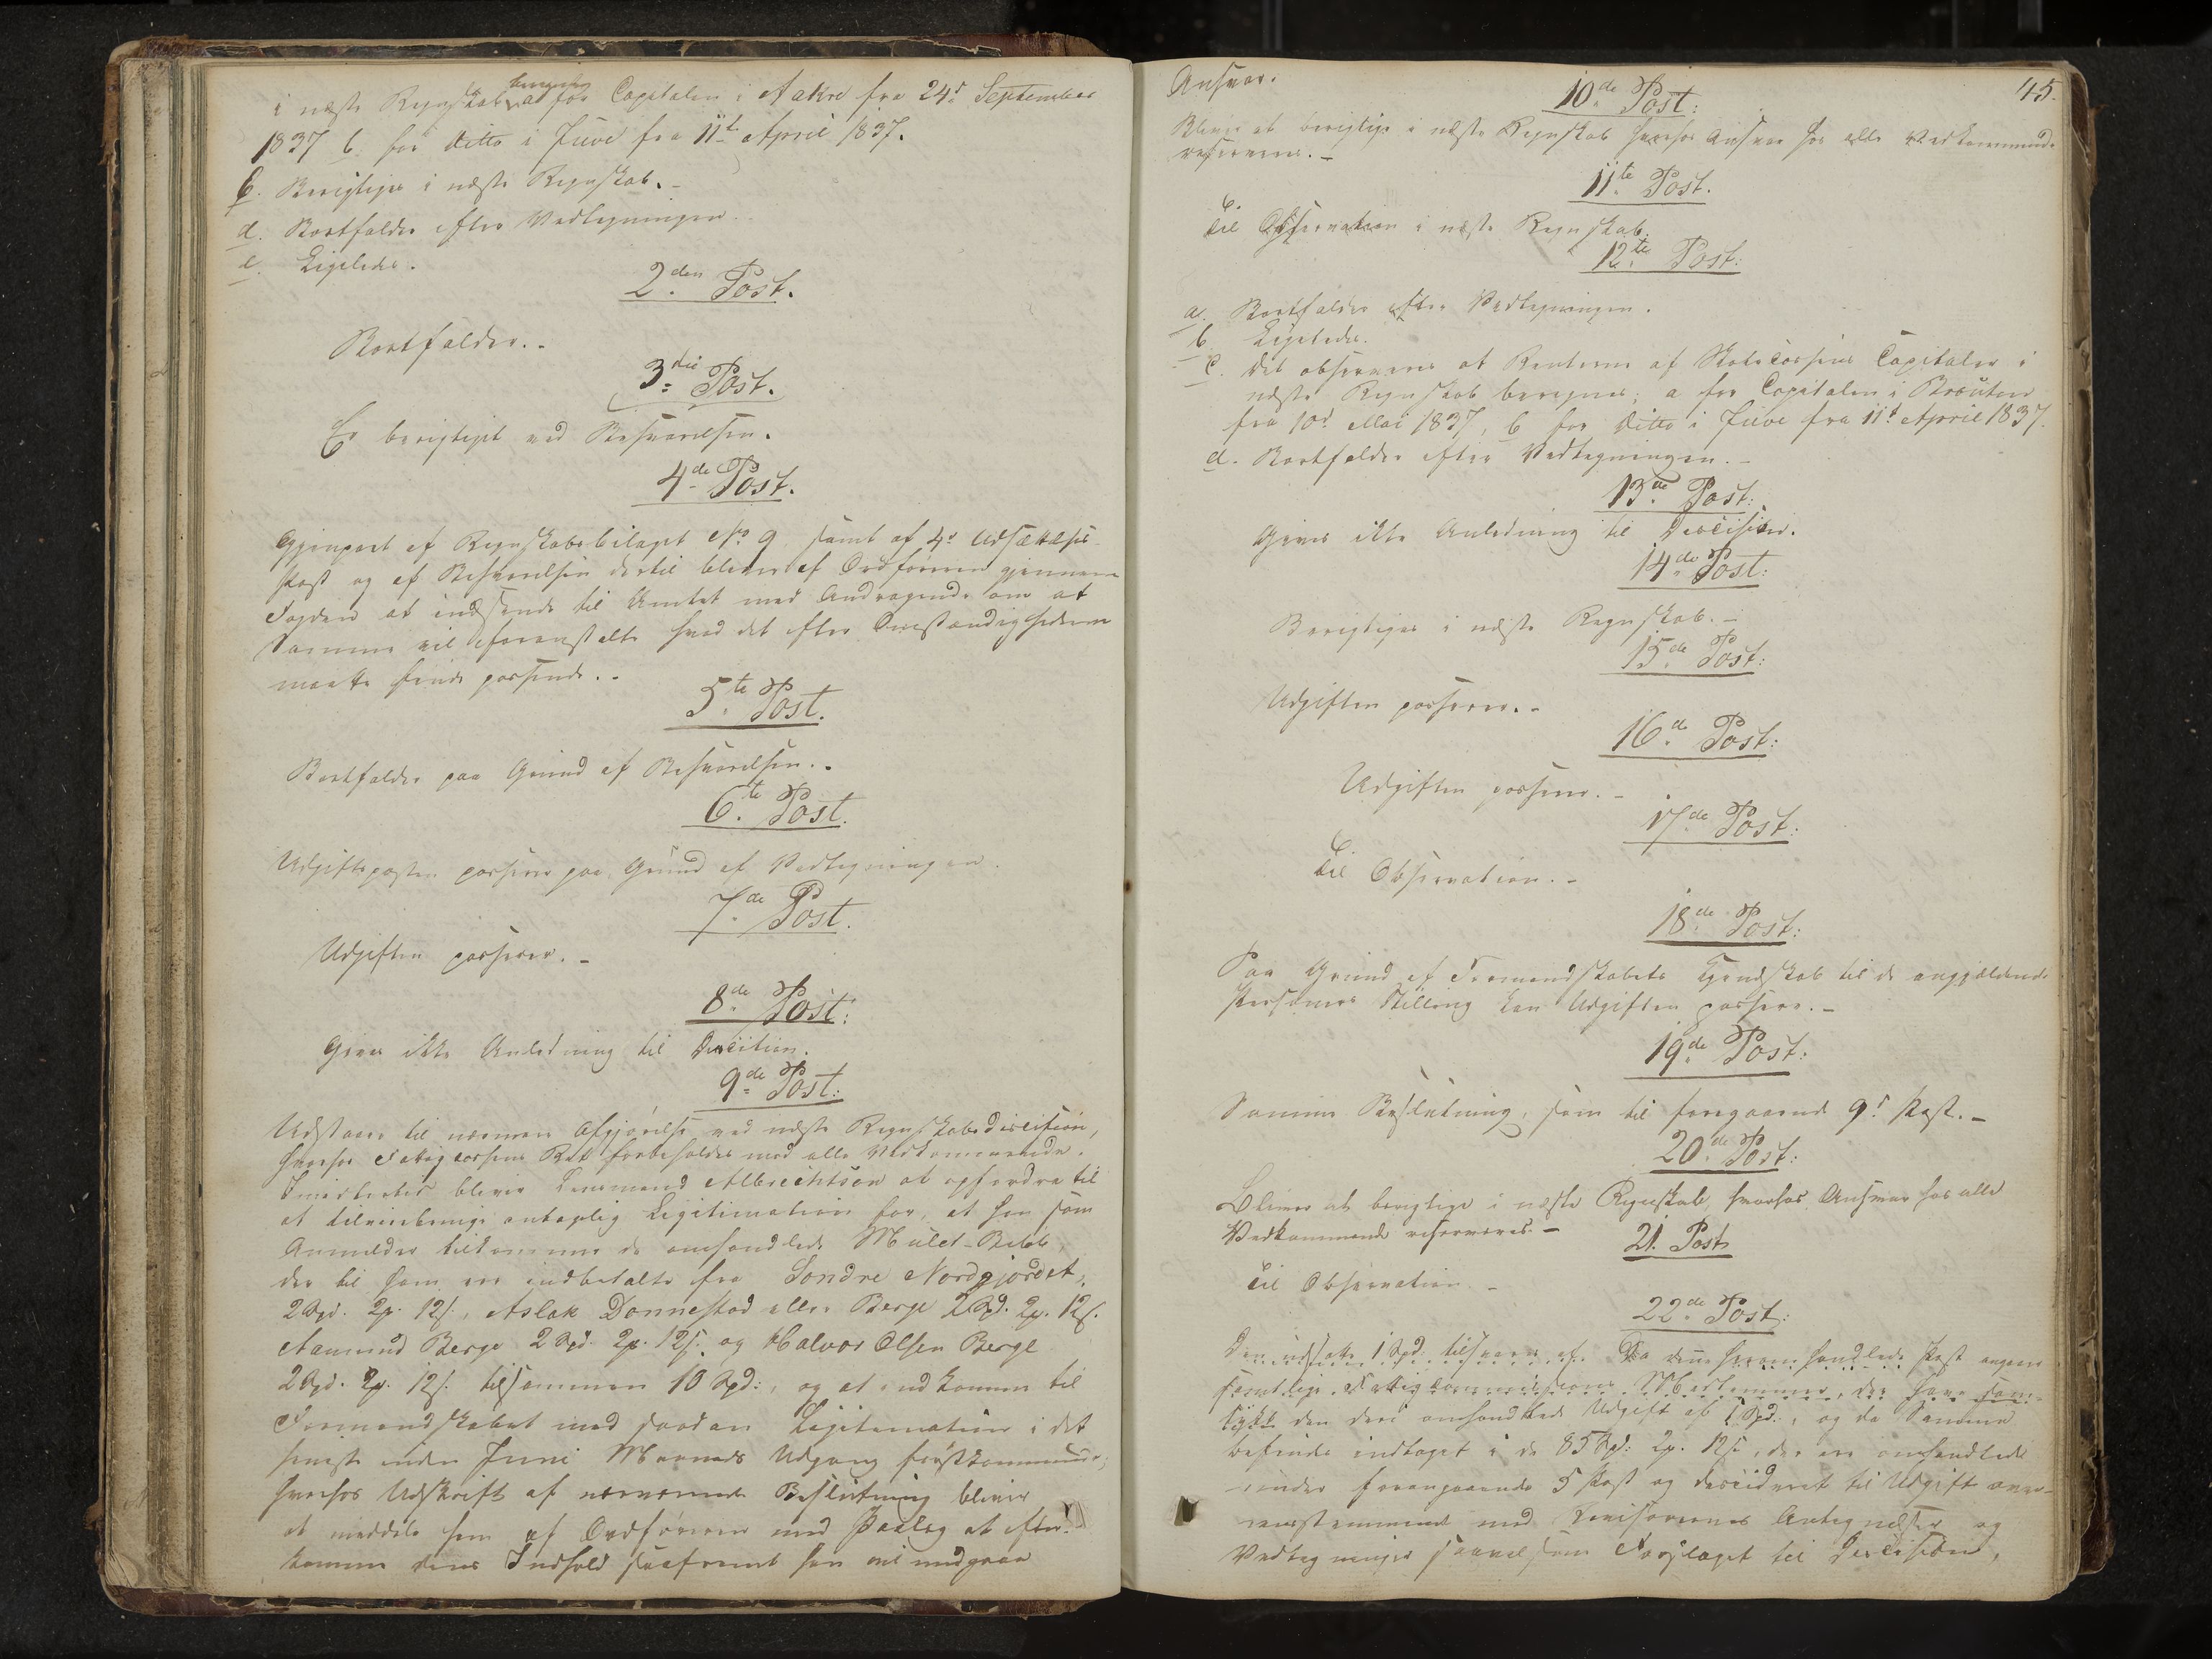 beregnes
i næste Regnskab a for Capitalen i Aakre fra 24d September
1837 b. for ditto i Juve fra 11te April 1837.
c. Berigtiges i næste Regnskab.-
d. Bortfalder efter Vedtegningen.
e. Ligeledes.
2den Post.
Bortfalder.-
3die Post.
Er berigtiget ved Besvarelsen.
4de Post.
Gjenpart af Regnskabsbilaget No 9 samt af 4de Udsættelses
Post og af Besvarelsen dertil bliver af Ordføreren gjennem
Fogden at indsende til Amtet med Andragende om at
Samme vil foranstalte hvad det efter Omstændighederne
maatte finde passende.-
5te Post.
Bortfalder paa Grund af Besvarelsen.-
6te Post.
Udgiftsposten passerer paa Grund af Vedtegningen.
7de Post.
Udgiften passerer.-
8de Post:
Giver ikke Anledning til Decition.
9de Post:
Udstaaer til nærmere Afgjørelse ved næste Regnskabs decision,
hvorhos Fattigcassens Ret forbeholdes mod alle Vedkommende.
Imidlertid bliver Lensmand Albrechtson at opfordre til
at tilveiebringe antagelig Legitimation for, at han som
Anmelder tilkommer de omhandlede Mulct-Beløb,
der til ham ere indbetalte fra Sondre Nordgjordet,
2 Spd. 2 . 12 s., Aslak Donnestad eller Berge 2 Spd. 2 . 12 s.
Aamund Berge 2 Spd. 2 . 12 s. og Halvor Olsen Berge
2 Spd. 2 . 12 s. tilsammen 10 Spd:, og at indkomme til
Formandskabet med saadan Legitimation i det
seneste inden Juni Maaneds Udgang førstkommende;
hvorhos Udskrift af nærværende Beslutning bliver
at meddele ham af Ordføreren med Paalæg at efter-
komme dens Indhold saafremt han vil undgaae
Ansvar.
45.
10de Post:
Bliver at berigtige i næste Regnskab hvorhos Ansvar hos alle Vedkommende
reserveres.-
11te Post.
Til Observation i næste Regnskab.
12te Post:
a. Bortfalder efter Vedtegningen.
b. Ligeledes.
c. Det observeres at Renterne af Skolecassens Capitaler i
næste Regnskab beregnes; a for Capitalen i Brøuten
fra 10d Mai 1837, b for ditto i Juve fra 11t April 1837.
d. Bortfalder efter Vedtegningen.-
13de Post:
Giver ikke Anledning til Decision.
14de Post:
Berigtiges i næste Regnskab.-
15de Post:
Udgiften passerer.-
16de Post:
Udgiften passerer.-
17de Post:
Til Observation.-
18de Post:
Paa Grund af Formandskabets Kjendskab til de angjældende
Personers Stilling kan Udgiften passere.-
19de Post:
Samme Beslutning, som til foregaaende 9d Post.-
20de Post:
Bliver at berigtige i næste Regnskab, hvorhos Ansvar hos alle
Vedkommende reserveres.-
21. Post
Til Observation.-
22de Post:
Den udsatte 1 Spd. tilsvares af. Da denne heromhandlede Post angaaer
samtlige Fattigcommissionens Medlemmer, der have sam-
tykt den deri omhandlede Udgift af 1 Spd., og da Samme
befindes indtaget i de 85 Spd: 2 . 12 s, der ere omhandlede
under foregaaende 5 Post og decideret til Udgift over-
eensstemmende med Revisorernes Antegnelser og
Vedtegninger saavelsom Forslaget til Decision,